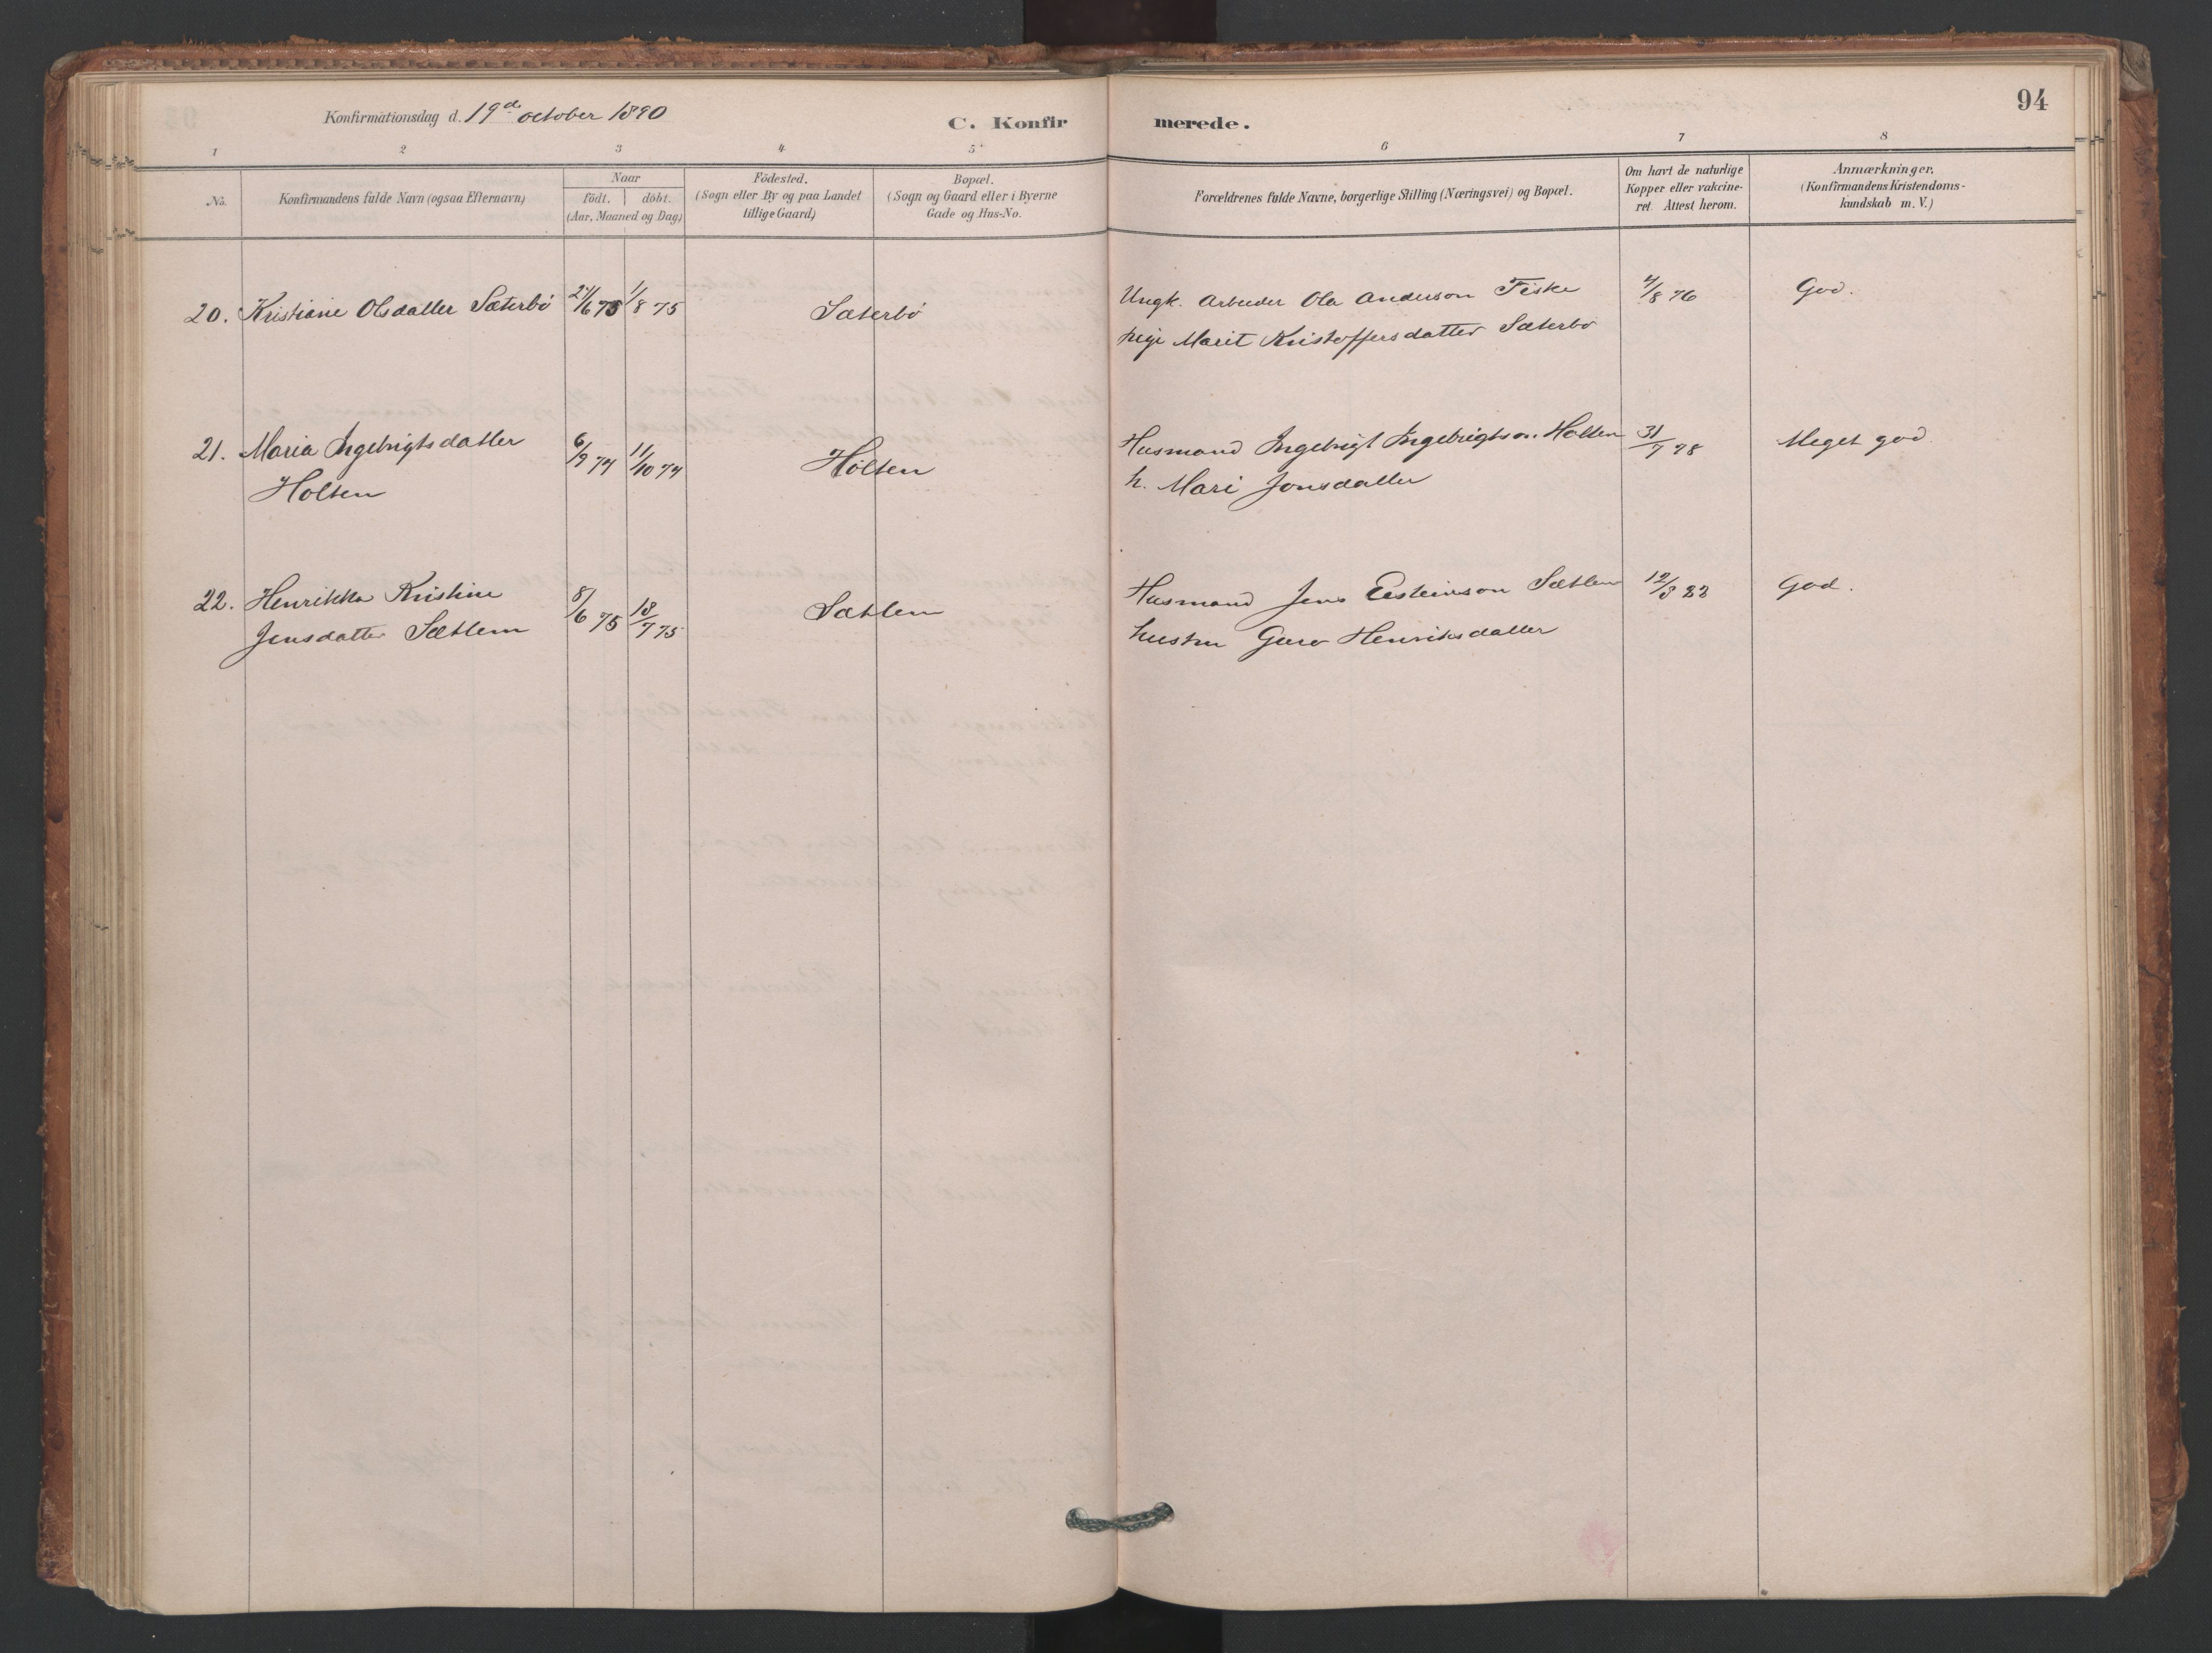 94
Konfirmationsdag d. 19de october 1890
C. Konfirmerede.
1 2 3 4 5 6 7 8
No.
Konfirmandens fulde Navn (ogsaa Efternavn)
Naar
födt. döbt.
(Aar, Maaned og Dag)
Födested.
(Sogn eller By og paa Landet
tillige Gaard)
Bopæl.
(Sogn og Gaard eller i Byerne
Gade og Hus-No.
Forældrenes fulde Navne, borgerlige Stilling (Næringsvei) og Bopæl.
Om havt de naturlige
Kopper eller vakcine-
ret. Attest herom.
Anmærkninger.
(Konfirmandens Kristendoms-
kundskab m. V.)
20. Kristiane Olsdatter Sæterbö 1/8 75 Sæterbö Ungk. Arbeider Ola Anderson Fiske 4/8 76 God.
pige Marit Kristoffersdatter Sæterbö
21. Maria Ingebrigtsdatter 6/9 74 11/10 74 Holten Husmand Ingebrigt Ingebrigtson Holten 31/7 78 Meget god
Holten h. Mari Jonsdatter
22. Henrikka Kristine 8/6 75 18/7 75 Sætlem Husmand Jens Eisteinson Sætlem God.
Jensdatter Sætlem hustru Guro Henriksdatter